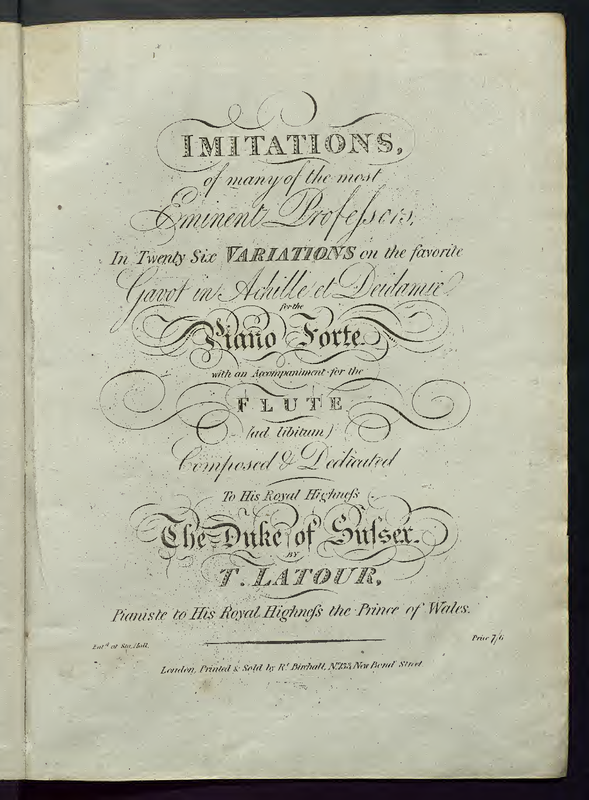 IMITATIONS,
of many of the most
Eminent Profeſsors,
In Twenty Six VARIATIONS on the favorite
Gavot in Achille et Deidamie
for the
Piano Forte.
with an Accompaniment for the
FLUTE
(ad libitum)
Composed & Dedicated
To His Royal Highneſs
The Duke of Suſsex.
BY
T. LATOUR,
Pianiste to His Royal Highneſs the Prince of Wales.
Ent.d at Sta. Hall.
Price 7/6
London, Printed & Sold by R.t Birchall, No. 133, New Bond Street